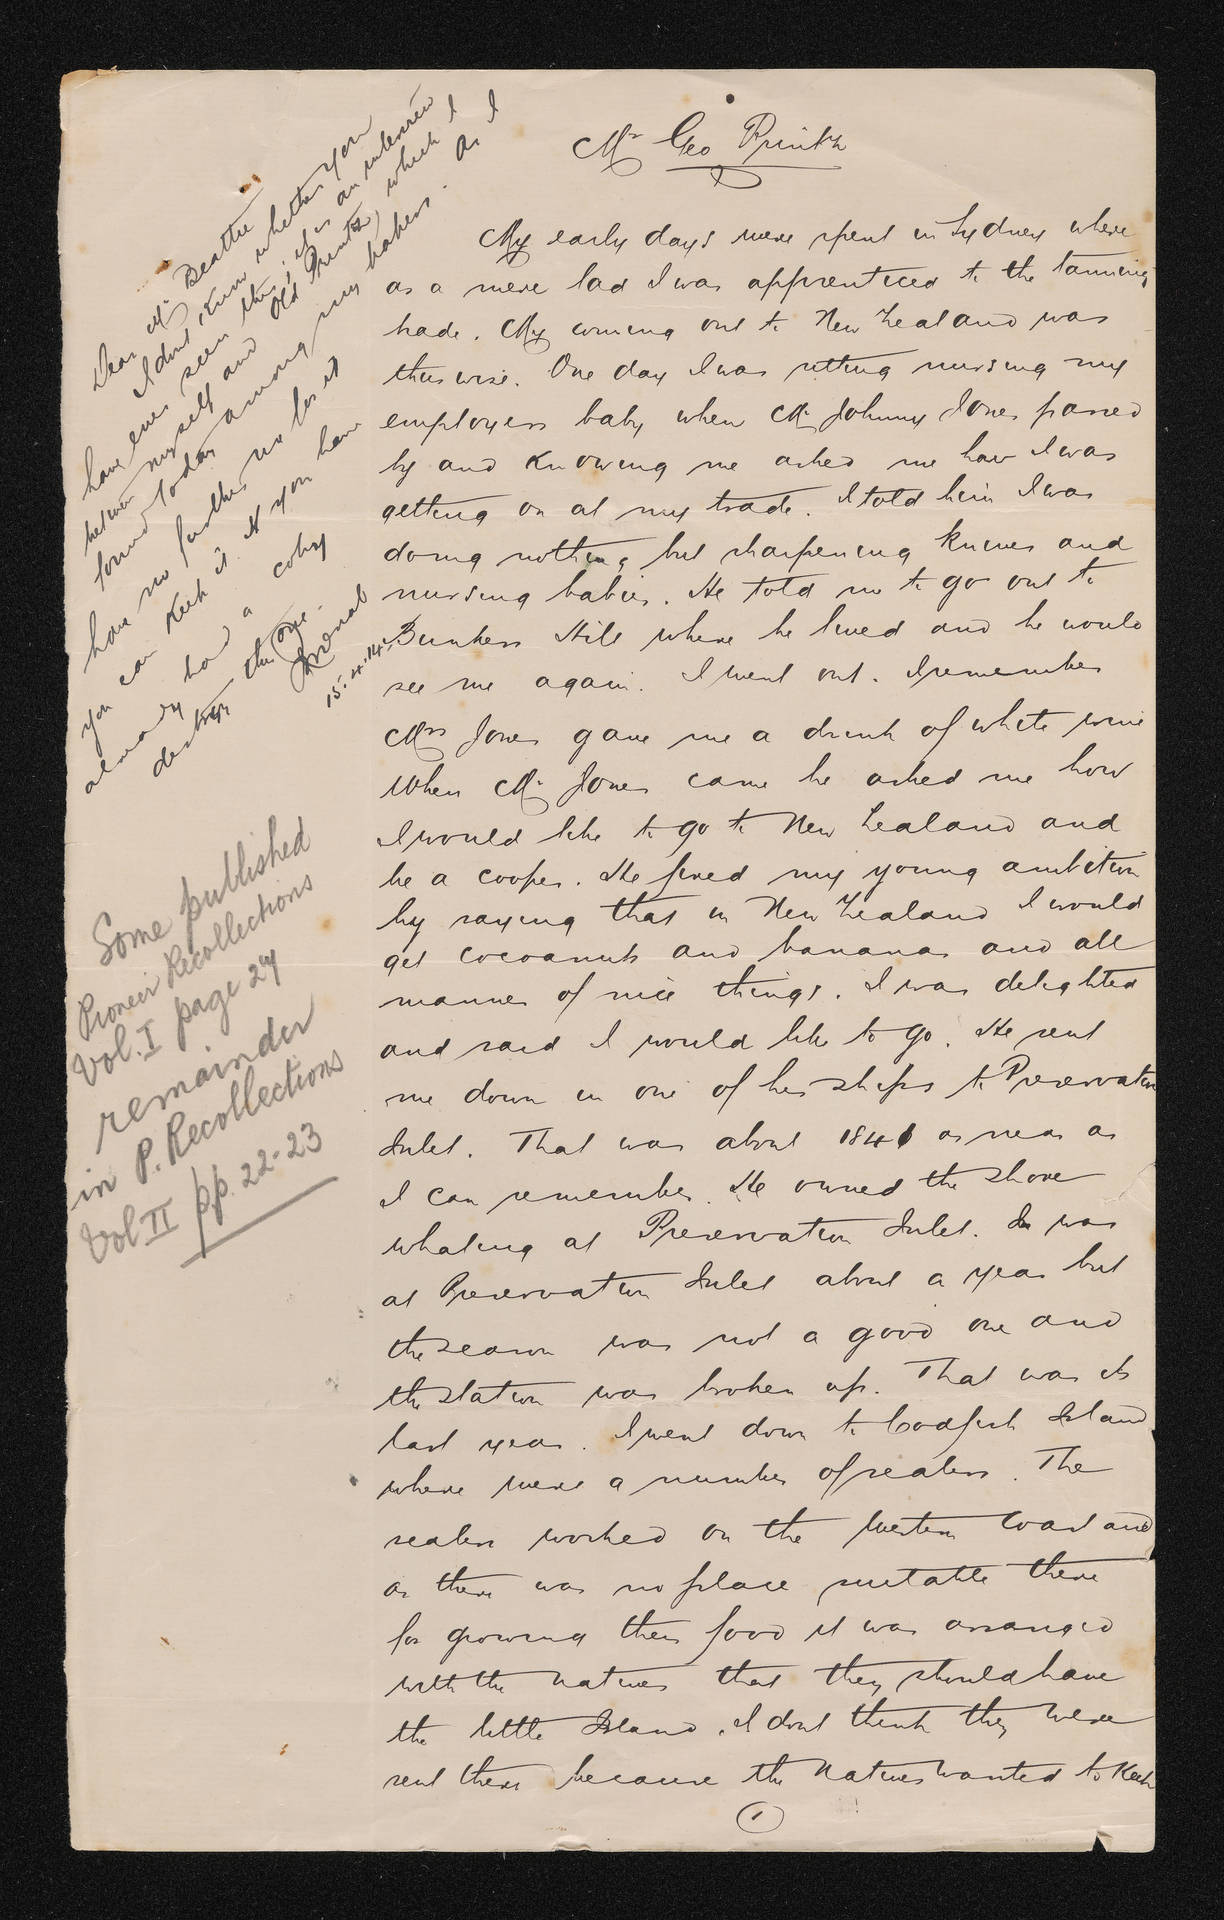 Mr Geo Printz
My early days were spent in Sydney where
as a mere lad I was apprenticed to the tanning
trade. My coming out to New Zealand was
thiswise. One day I was sitting nursing my
employers baby when Mr Johnny Jones passed
by and knowing me asked me how I was
getting on at my trade. I told him I was
doing nothing but sharpening knives and
nursing babies. He told me to go out to
Bunkers Hill where he lived and he would
see me again. I went out. I remember
Mrs Jones gave me a drink of white wine
When Mr Jones came he asked me how
I would like to go to New Zealand and
be a cooper. He fired my young ambition
by saying that in New Zealand I would
get cocoanuts and bananas and all
manner of nice things. I was delighted
and said I would like to go. He sent
me down in one of his ships to Preservation
Inlet. That was about 1841 as near as
I can remember. He owned the shore
whaling at Preservation Inlet. I was
at Preservation Inlet about a year but
the season was not a good one and
the station was broken up. That was its
last year. I went down to Codfish Island
where were a number of sealers. The
sealers worked on the Western Coast and
as there was no place suitable there
for growing their food it was arranged
with the natives that they should have
the little Island. I dont think they were
sent there because the Natives wanted to keep
1
Dear Mr Beattie
I dont know whether you
have ever seen this; it is an interview
between myself and Old Printz, which I
found today among my papers. As I
have no further use for it
you can keep it. If you have
already had a copy
destroy this one.
15.4.14.
Some published
Pioneer Recollections
Vol. I page 24
remainder
in P. Recollections
Vol II pp. 22-23